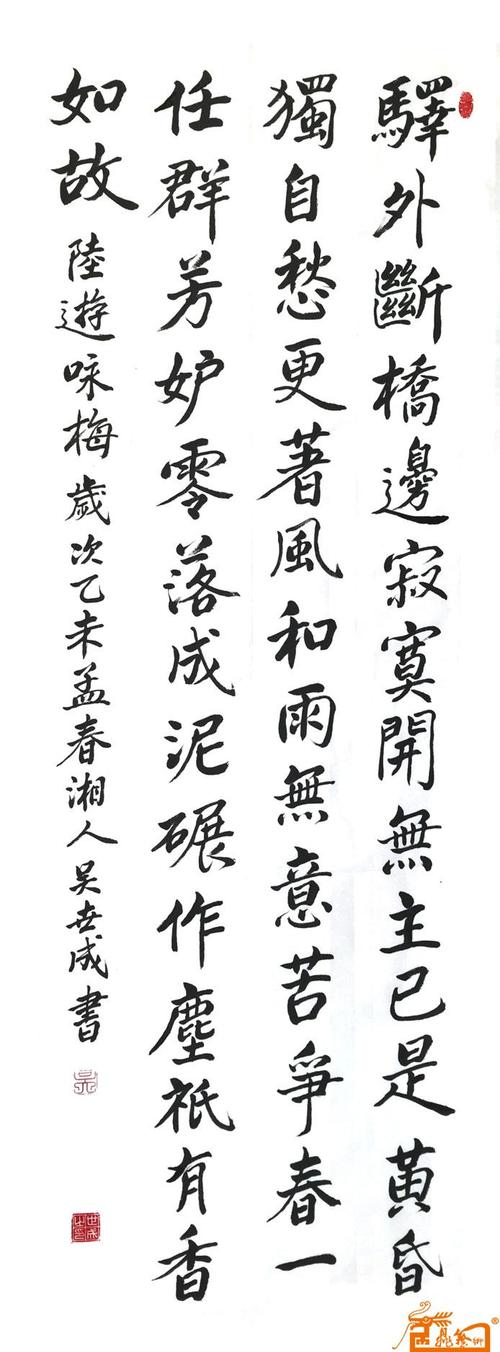 驛外斷橋邊寂寞開無主已是黃昏
獨自愁更著風和雨無意苦爭春一
任群芳妒零落成泥碾作塵祇有香
如故
陸遊咏梅歲次乙未孟春湘人吴世成書